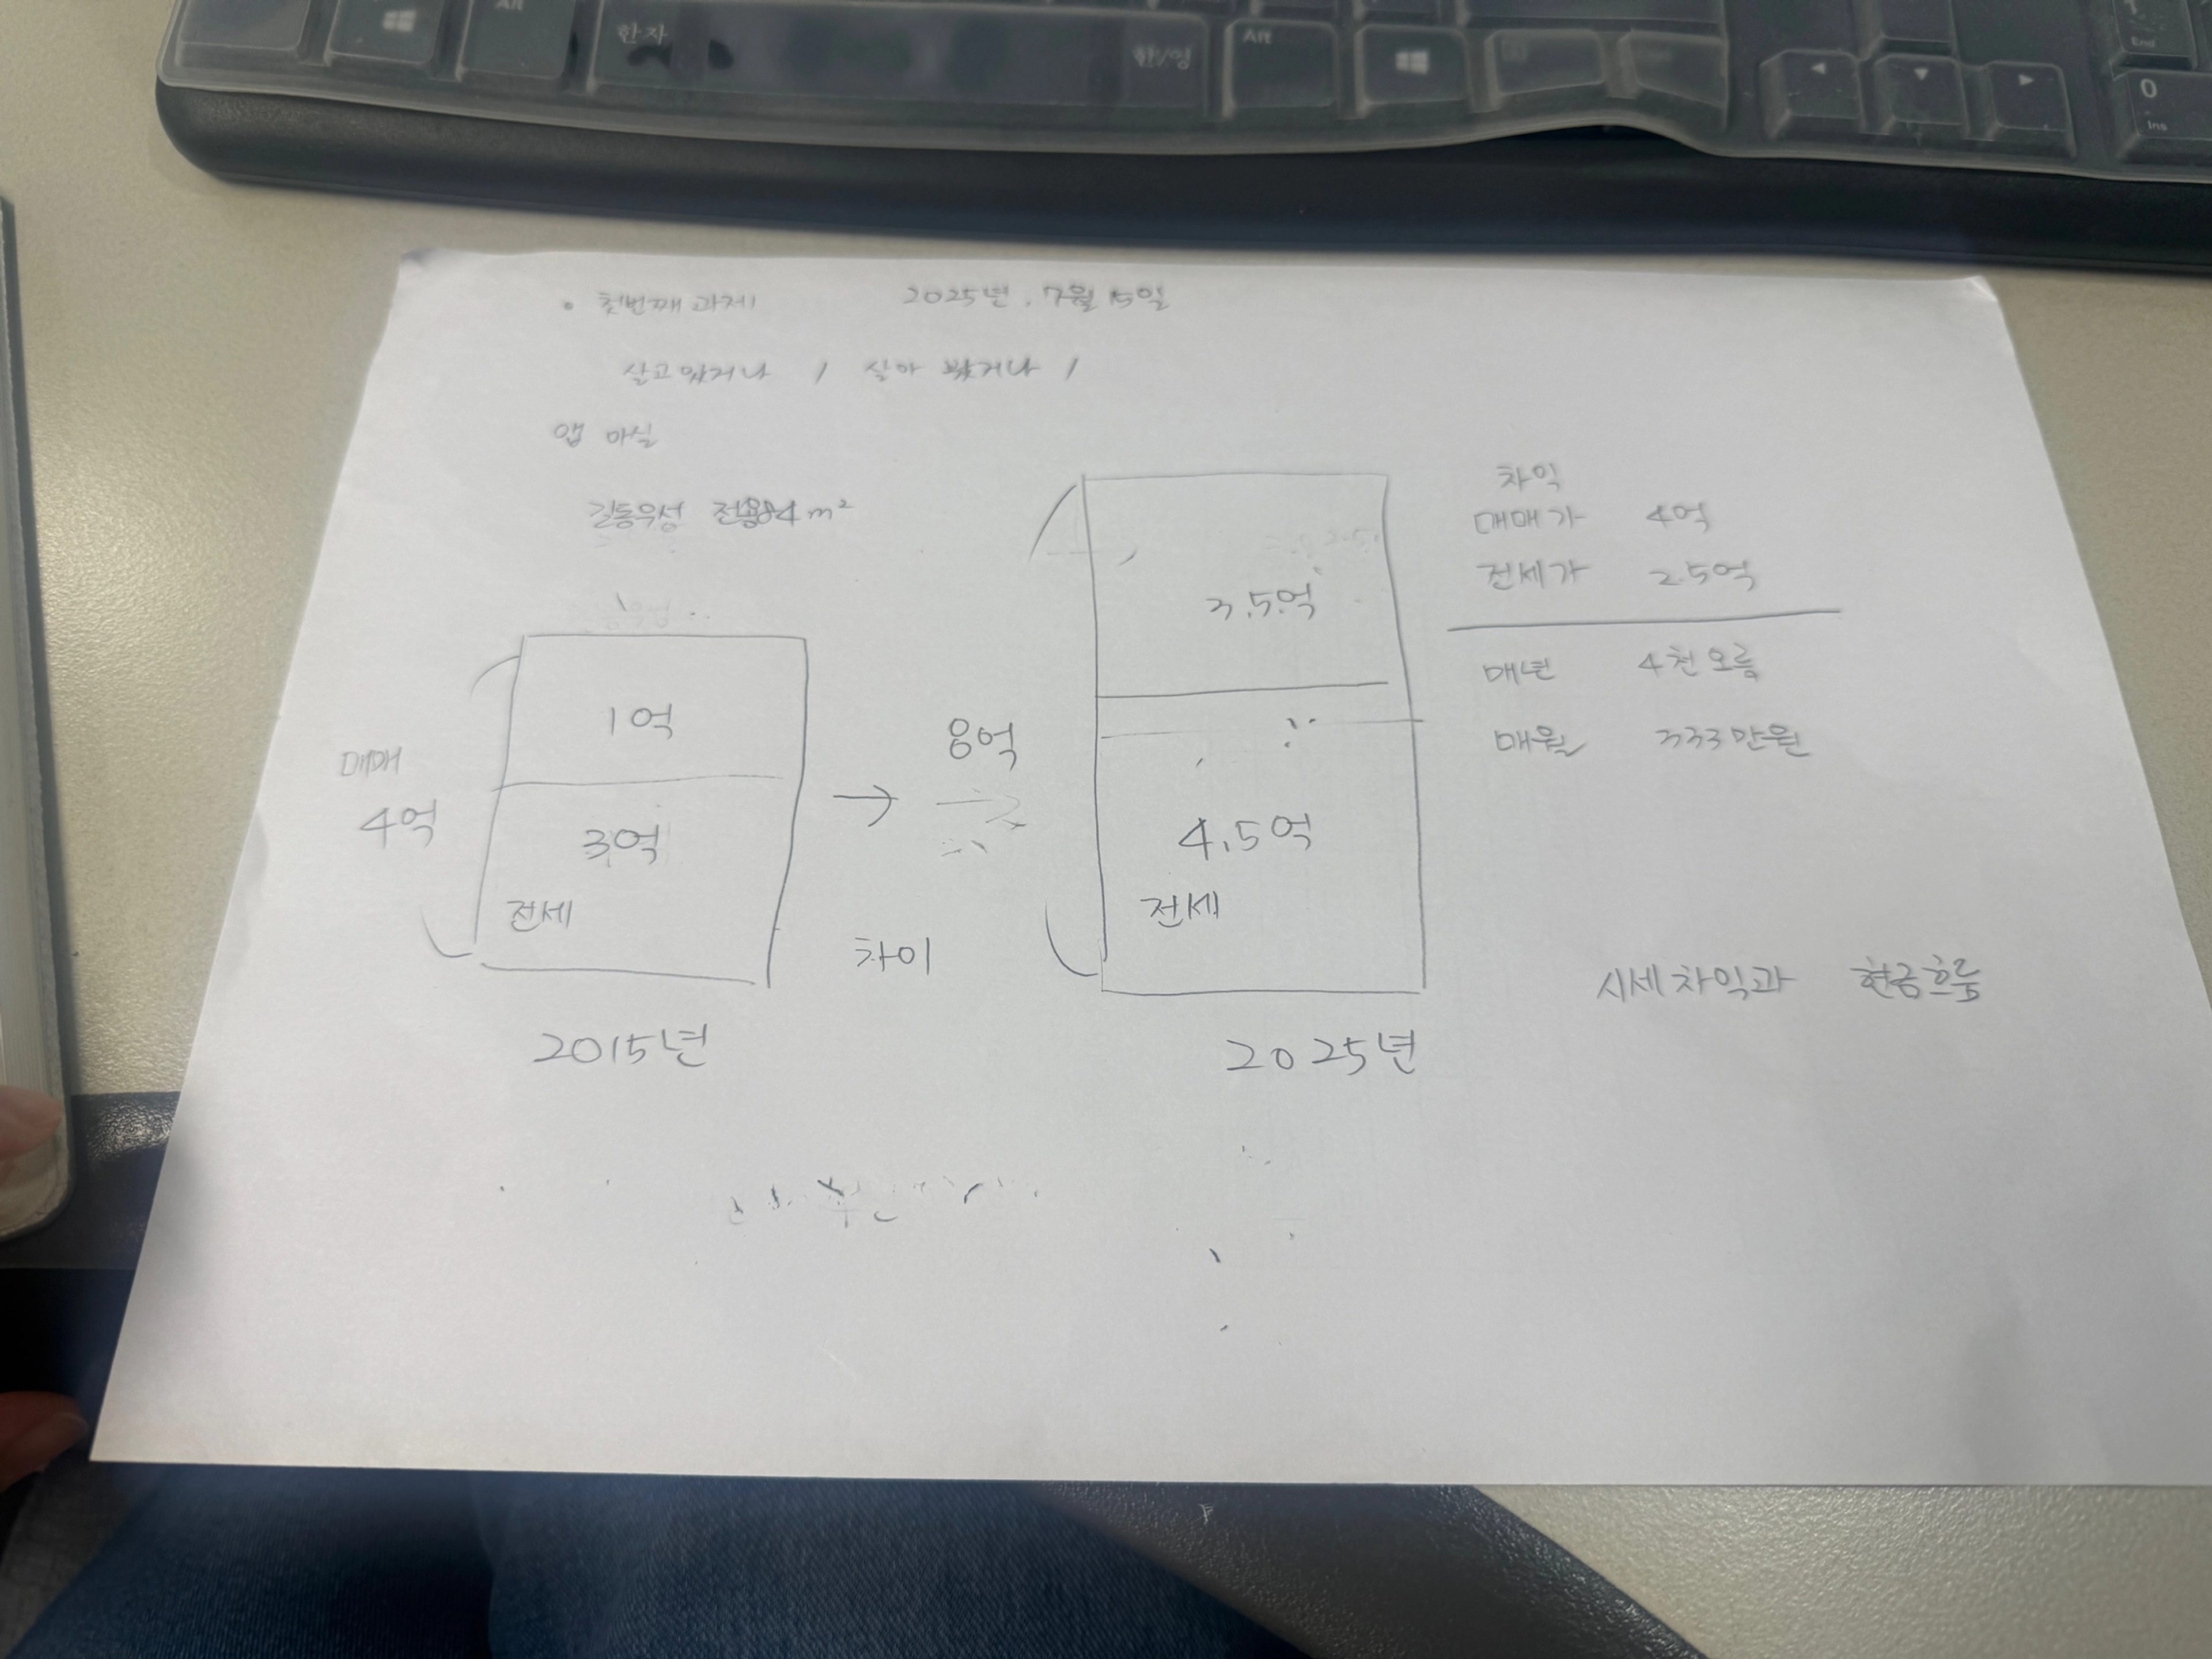 Alt
한자
한/영
Alt
End
0
Ins
• 첫번째 과제 2025년. 7월 15일
살고 있거나 / 살아 봤거나 /
앱 아실
길동우성 전용84m²
차익
매매가 4억
전세가 2.5억
매년 4천 오름
매월 333만원
매매
4억
1억
3억
전세
2015년
→ 8억
차이
3.5억
4.5억
전세
2025년
시세차익과 현금흐름